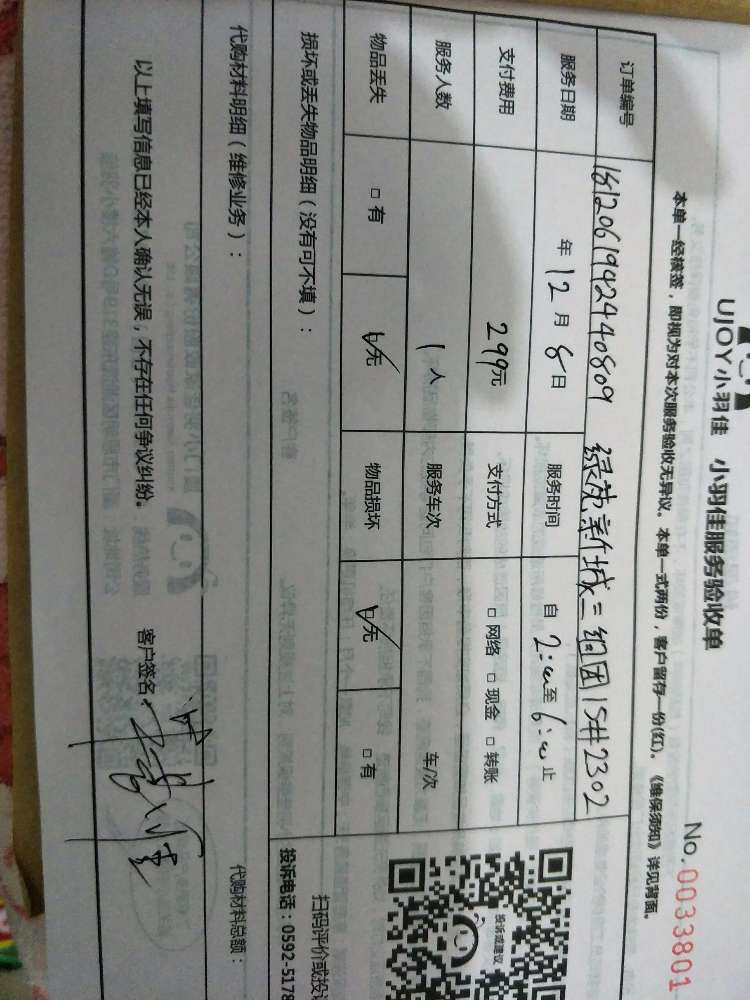 UJOY小羽佳 小羽佳服务验收单
No.0033801
本单一经核签，即视为对本次服务验收无异议。本单一式两份，客户留存一份(红)。《维保须知》详见背面。
订单编号 1812061942440809 绿苑新城二组团15#2302
服务日期 年12月8日 服务时间 自2:00至6:00止
支付费用 299元 支付方式 □网络 □现金 □转账
服务人数 1人 服务车次 车/次
物品丢失 □有 ☑无 物品损坏 ☑无 □有
损坏或丢失物品明细（没有可不填）：
投诉或建议
扫码评价或投
投诉电话：0592-5178
代购材料明细（维修业务）： 代购材料总额：
以上填写信息已经本人确认无误，不存在任何争议纠纷。 客户签名：